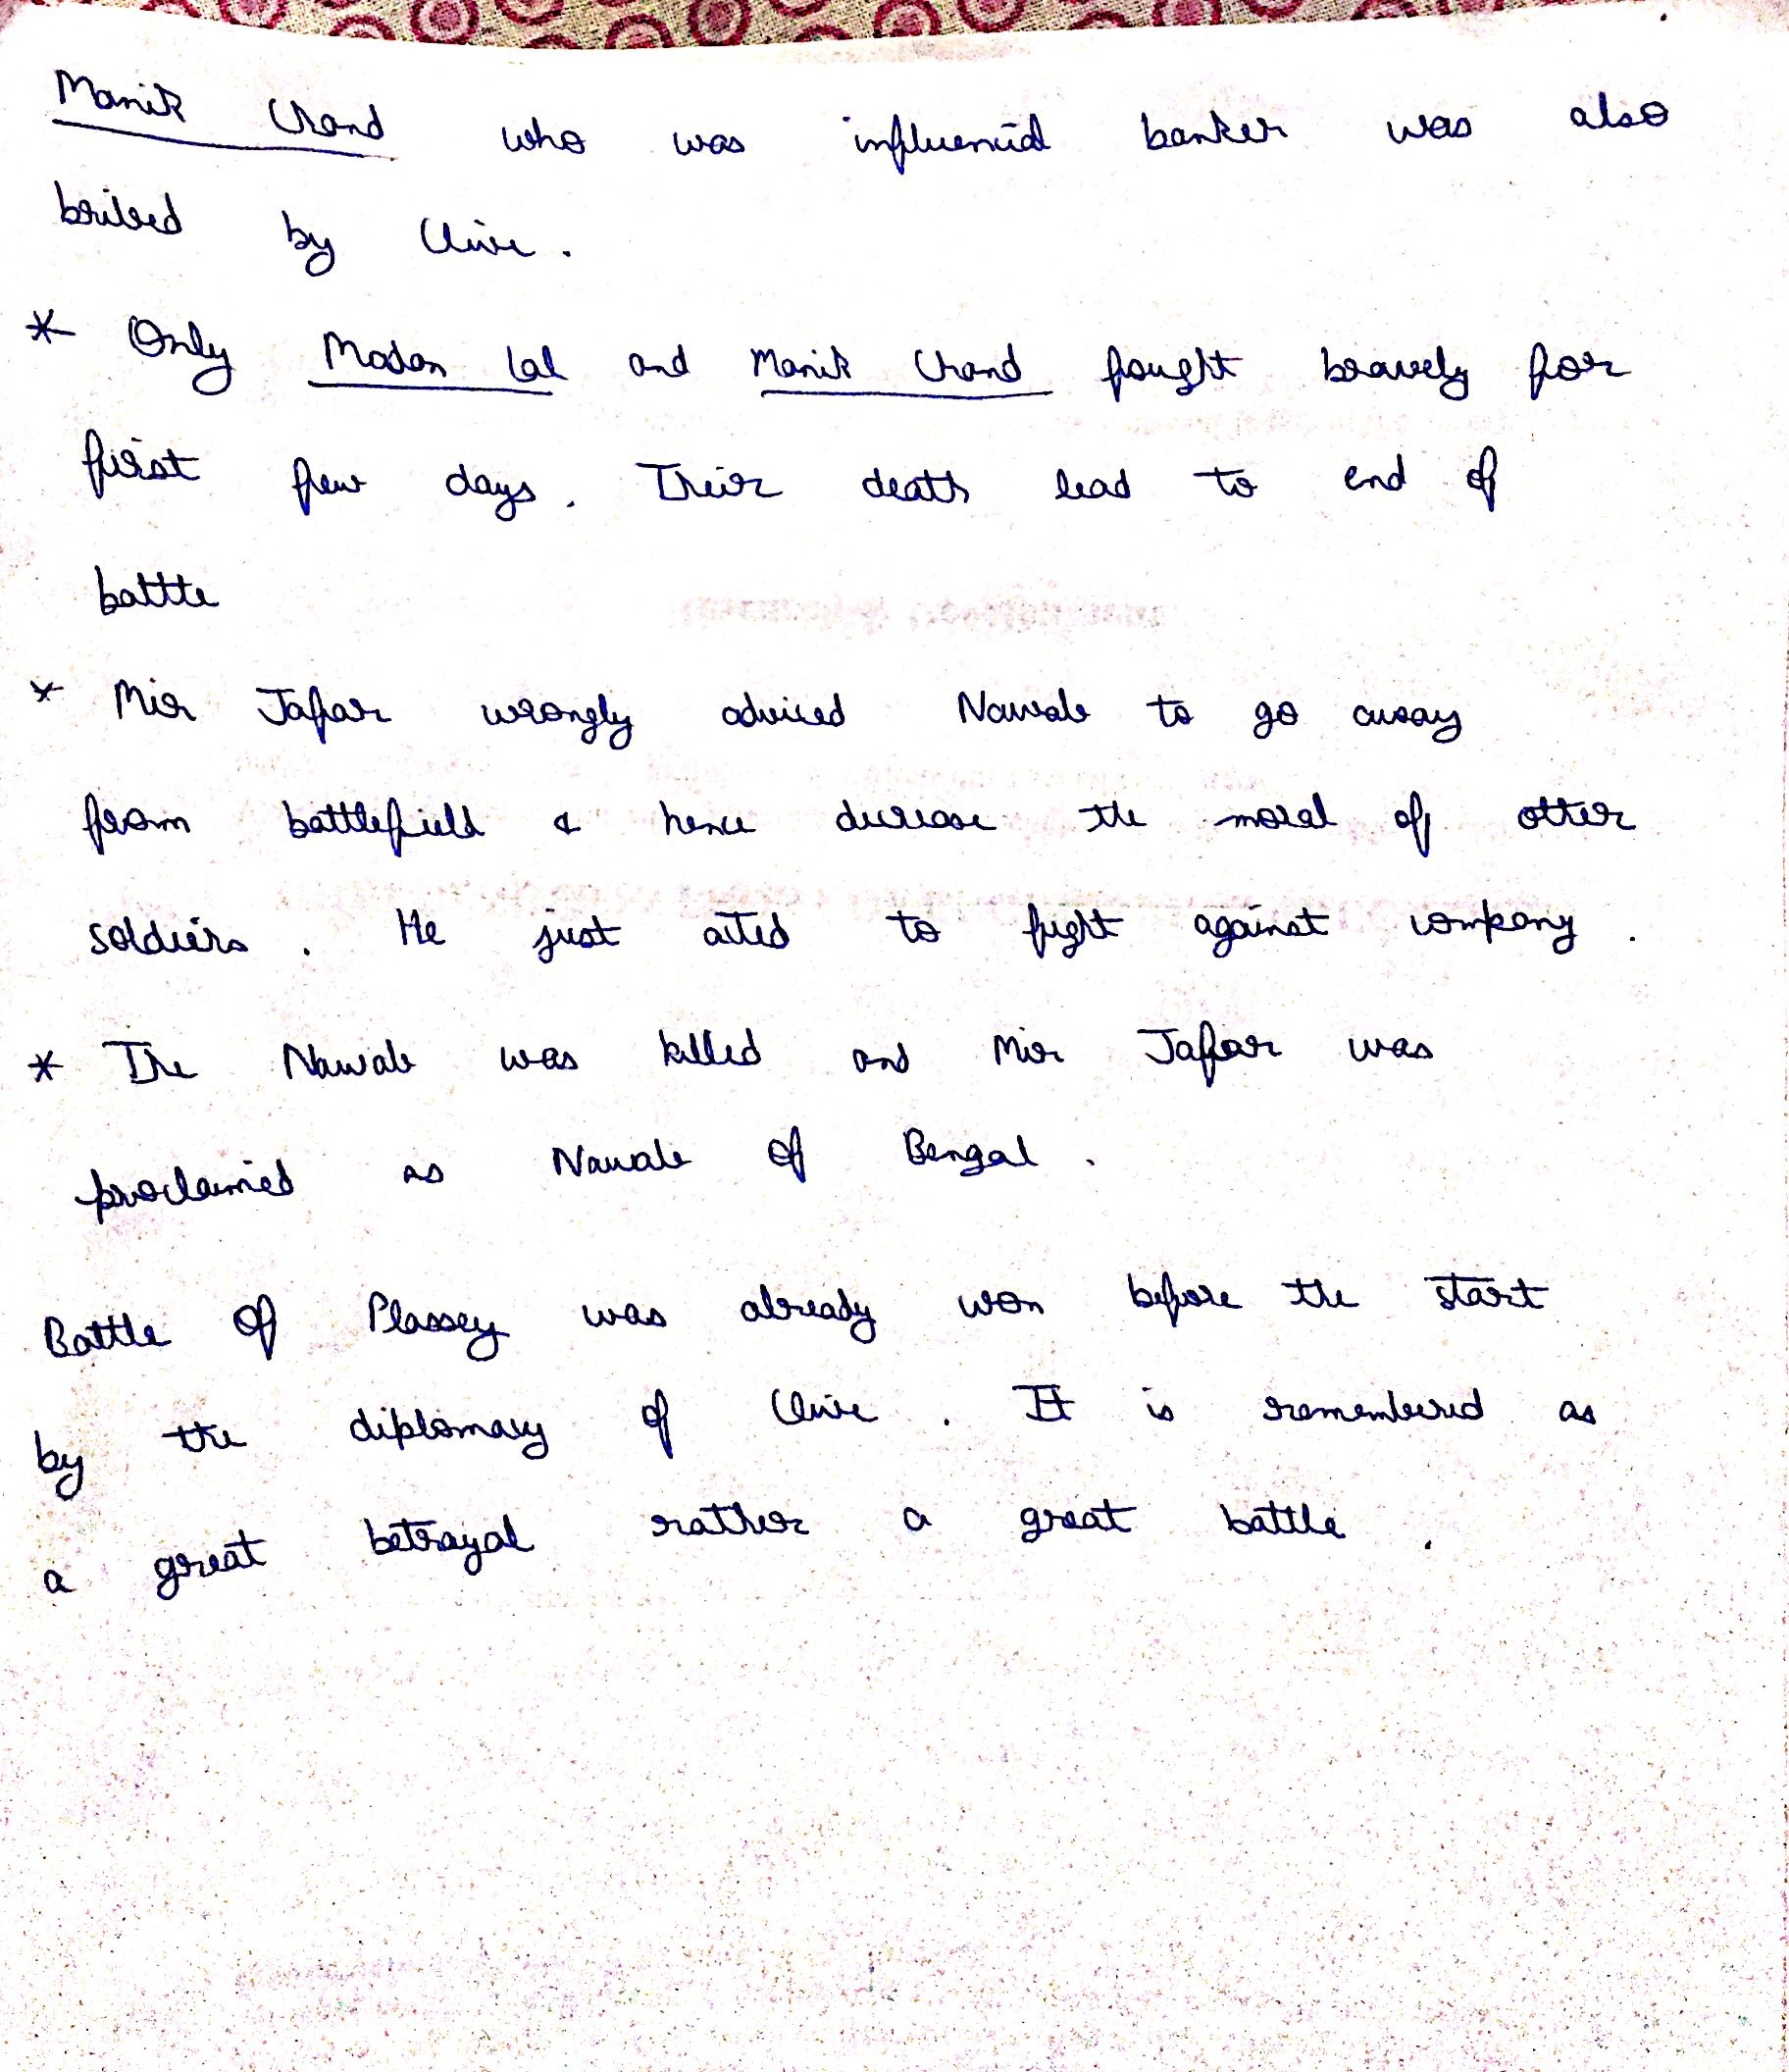 Manik Chand who was influencial banker was also
bribed by Clive.
* Only Madan Lal and Manik Chand fought bravely for
first few days. Their death lead to end of
battle
* Mir Jaffar wrongly adviced Nawab to go away
from battlefield & hence decrease the moral of other
soldiers. He just acted to fight against company.
* The Nawab was killed and Mir Jaffar was
proclaimed as Nawab of Bengal.
Battle of Plassey was already won before the start
by the diplomacy of Clive. It is remembered as
a great betrayal rather a great battle.